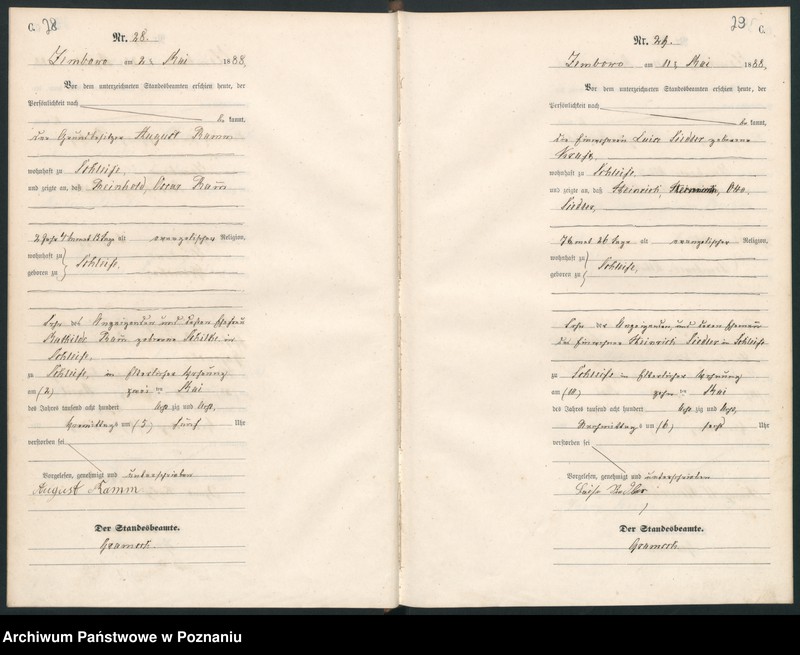 C. 28
Nr. 28.
Zembowo am 2 Mai 1888.
Vor dem unterzeichneten Standesbeamten erschien heute, der
Persönlichkeit nach
be kannt,
der Grundbesitzer August Ramm
wohnhaft zu Schleife,
und zeigte an, daß Reinhold, Oscar Ramm
2 Jahr 4 Monat Tage alt evangelischer Religion,
wohnhaft zu
geboren zu Schleife,
Sohn des Anzeigenden und dessen Ehefrau
Mathilde Ramm geborene in
Schleife
zu Schleife, in elterlicher Wohnung
am (2) zwei ten Mai
des Jahres tausend acht hundert acht zig und acht,
Vormittags um (5) fünf Uhr
verstorben sei
Vorgelesen, genehmigt und unterschrieben
August Ramm
Der Standesbeamte.
29 C.
Nr. 29.
Zembowo am 11 Mai 1888.
Vor dem unterzeichneten Standesbeamten erschien heute, der
Persönlichkeit nach
be kannt,
die Einwohnerin Luise Siedler geborene
wohnhaft zu Schleife,
und zeigte an, daß Heinrich, Otto
Siedler,
7 Monat 26 Tage alt evangelischer Religion,
wohnhaft zu
geboren zu Schleife,
Sohn der Anzeigenden, und deren Ehemann
des Einwohner Heinrich Siedler in Schleife
zu Schleife in elterlicher Wohnung
am (10) zehn ten Mai
des Jahres tausend acht hundert acht zig und acht,
Nachmittags um (6) sechs Uhr
verstorben sei
Vorgelesen, genehmigt und unterschrieben
Der Standesbeamte.
Archiwum Państwowe w Poznaniu